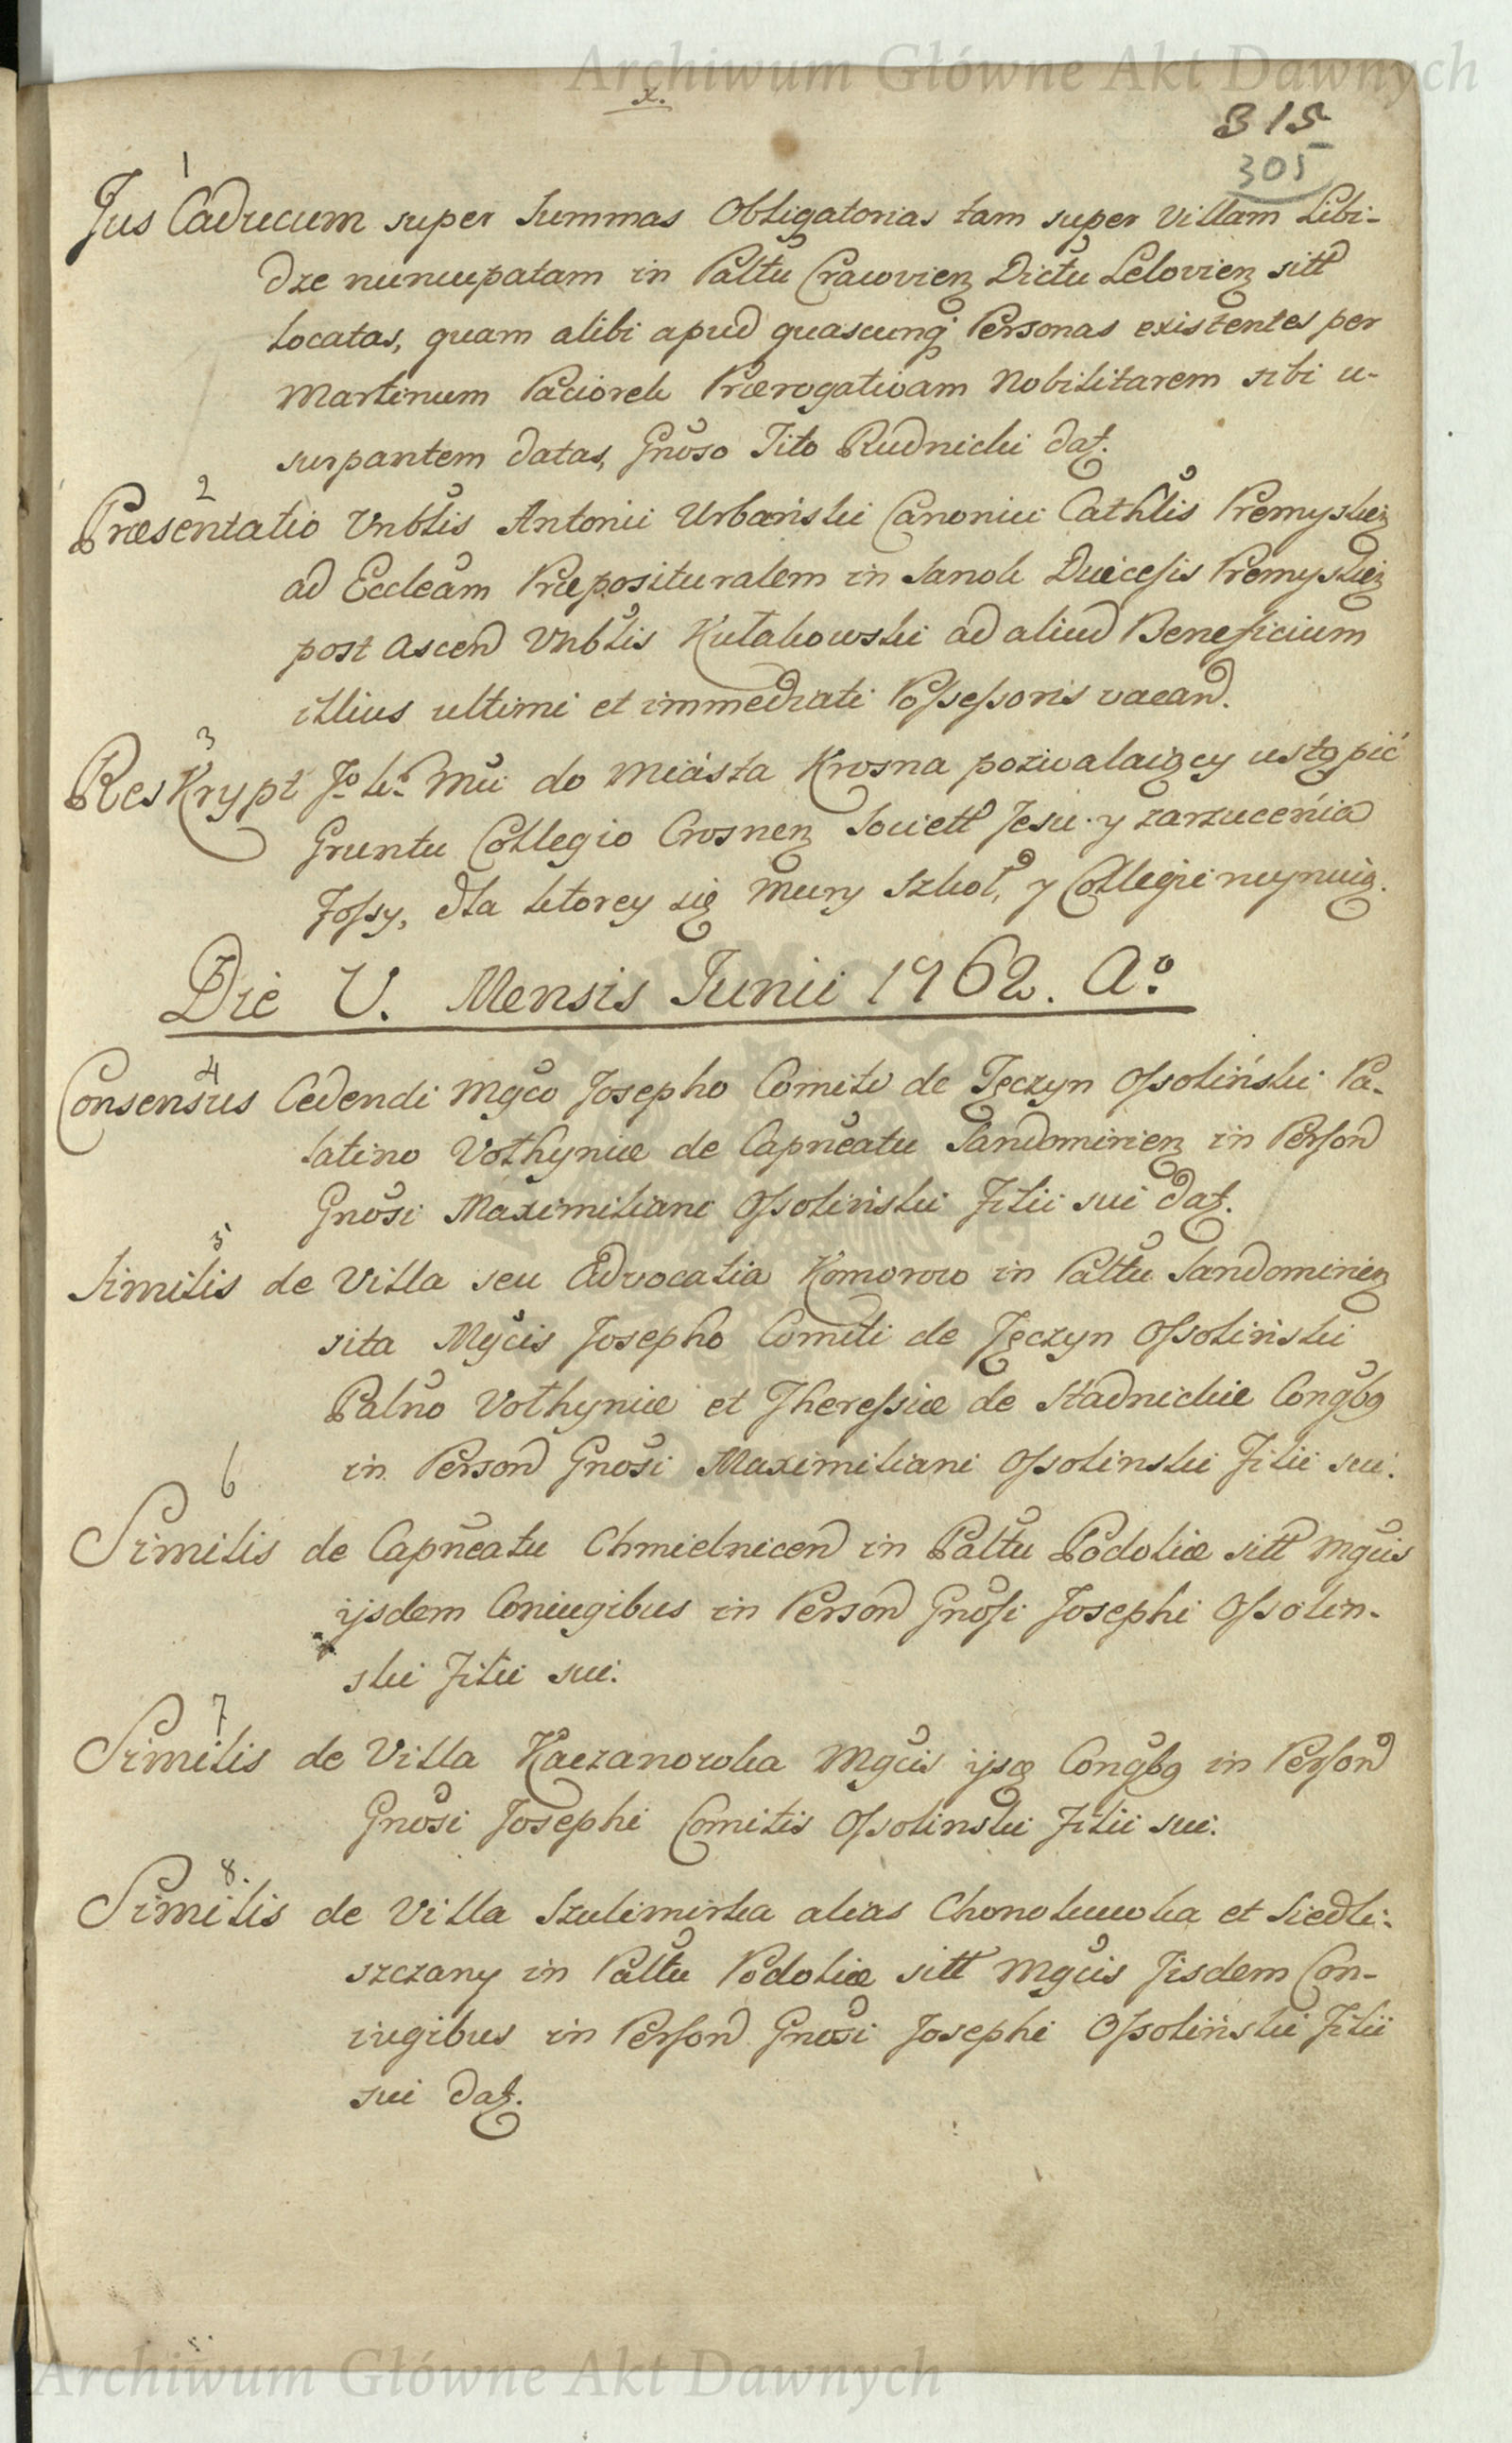 Archiwum Główne Akt Dawnych
x.
315
305
1
Jus Caducum super Summas Obligatorias tam super Villam Libi-
dze nuncupatam in Palŧu Cracovien Dictu Lelovien sitt
locatas, quam alibi apud quascunq Personas existentes per
Martinum Paciorek Prærogativam Nobilitarem sibi u-
surpantem datas, Gnoso Tito Rudnicki dat.
2
Præsentatio Vnblis Antonii Urbański Canonici Cathlis Premyslien
ad Eccleam Præposituralem in Sanok Diæcesis Premyslien
post ascend Vnblis Kułakowski ad aliud Beneficium
illius ultimi et immediati Possessoris vacand.
3
Reskrypt Jo K. Mci do Miasta Krosna pozwalaiący ustąpić
Gruntu Collegio Crosnen Societt Jesu y zarzucenia
Fossy, dla ktorey się Mury Szkoł, y Collegii ruynuią.
Die V. Mensis Junii 1762. Ao
4
Consensus Cedendi Mgco Josepho Comiti de Tęczyn Ossoliński Pa-
latino Volhyniæ de Capneatu Sandomirien in Person
Gnosi Maximiliani Ossoliński Filii sui dat.
5
Similis de Villa seu Advocatia Komorow in Palŧu Sandomirien
sita Mgcis Josepho Comiti de Tęczyn Ossoliński
Palno Volhyniæ et Theressiæ de Stadnickie Congbg
in Person Gnosi Maximiliani Ossolinski Filii sui.
6
Similis de Capneatu Chmielnicen in Palŧu Podoliæ sitt Mgcis
ijsdem Coniugibus in Person Gnosi Josephi Ossolin-
ski Filii sui.
7
Similis de Villa Kaczanowka Mgcis ijsd Congbg in Person
Gnosi Josephi Comitis Ossolinski Filii sui.
8.
Similis de Villa Szulimirka alias Chonoluwka et Siedli-
szczany in Palŧu Podoliæ sitt Mgcis Jisdem Con-
iugibus in Person Gnosi Josephi Ossoliński Filii
sui dat.
Archiwum Główne Akt Dawnych